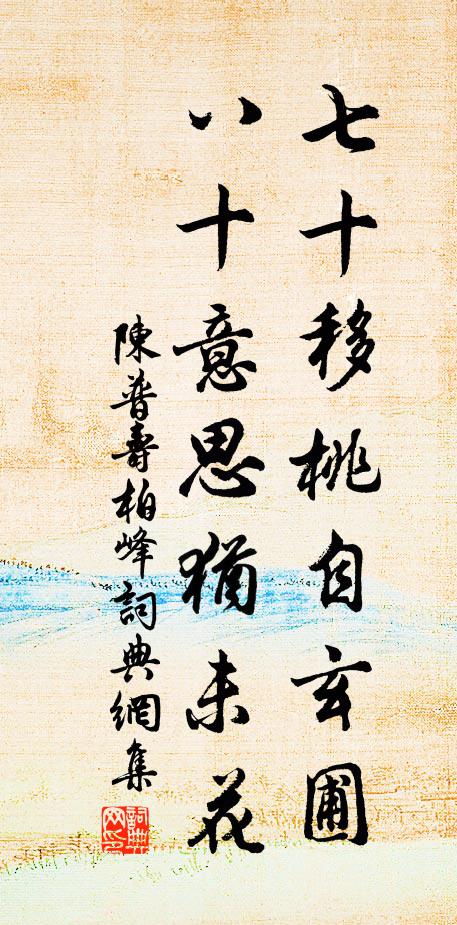 七十移桃自玄圃
八十意思猶未花
陳普壽柏峰詞典網集
詞典网印